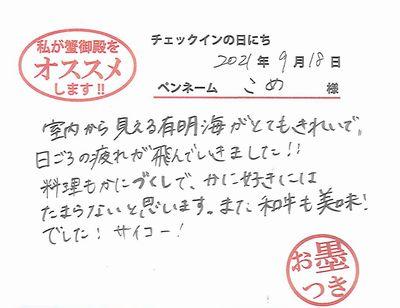 私が蟹御殿を
オススメ
します!!
チェックインの日にち
2021年9月18日
ペンネーム こめ 様
室内から見える有明海がとてもきれいで、
日ごろの疲れが飛んでいきました!!
料理もかにづくしで、かに好きには
たまらないと思います。また和牛も美味!
でした! サイコー!
お墨
つき